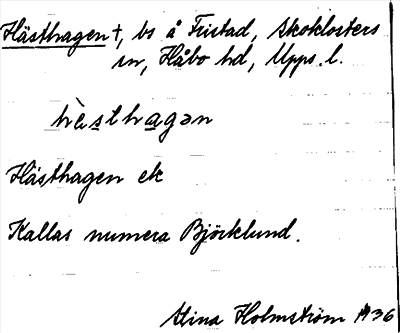 Hästhagen †, bs å Fristad, Skoklosters
sn, Håbo hd, Upps. l.
hὲsthagən
Hästhagen ek
Kallas numera Björklund.
Stina Holmström 1936